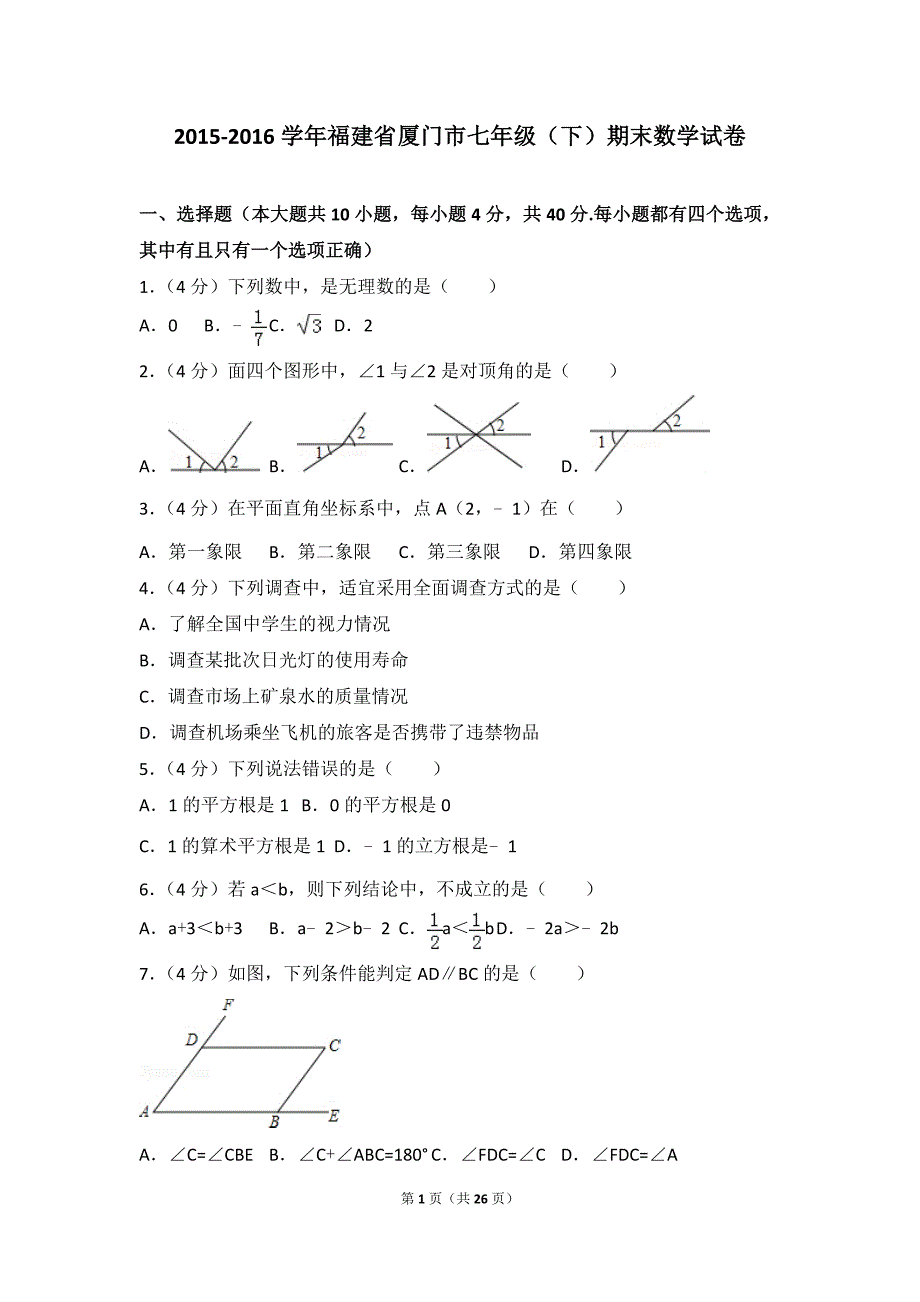 2015-2016 学年福建省厦门市七年级（下）期末数学试卷
一、选择题（本大题共 10 小题，每小题 4 分，共 40 分.每小题都有四个选项，
其中有且只有一个选项正确）
1．（4 分）下列数中，是无理数的是（　　）
A．0　B．﹣1/7 C．√3　D．2
2．（4 分）面四个图形中，∠1 与∠2 是对顶角的是（　　）
A． 1 2 B． 1 2 C． 1 2 D． 1 2
3．（4 分）在平面直角坐标系中，点 A（2，﹣1）在（　　）
A．第一象限　B．第二象限　C．第三象限　D．第四象限
4．（4 分）下列调查中，适宜采用全面调查方式的是（　　）
A．了解全国中学生的视力情况
B．调查某批次日光灯的使用寿命
C．调查市场上矿泉水的质量情况
D．调查机场乘坐飞机的旅客是否携带了违禁物品
5．（4 分）下列说法错误的是（　　）
A．1 的平方根是 1　B．0 的平方根是 0
C．1 的算术平方根是 1 D．﹣1 的立方根是﹣1
6．（4 分）若 a＜b，则下列结论中，不成立的是（　　）
A．a+3＜b+3　B．a﹣2＞b﹣2 C．1/2a＜1/2b D．﹣2a＞﹣2b
7．（4 分）如图，下列条件能判定 AD∥BC 的是（　　）
F
D C
A B E
A．∠C=∠CBE　B．∠C+∠ABC=180° C．∠FDC=∠C　D．∠FDC=∠A
第 1 页（共 26 页）